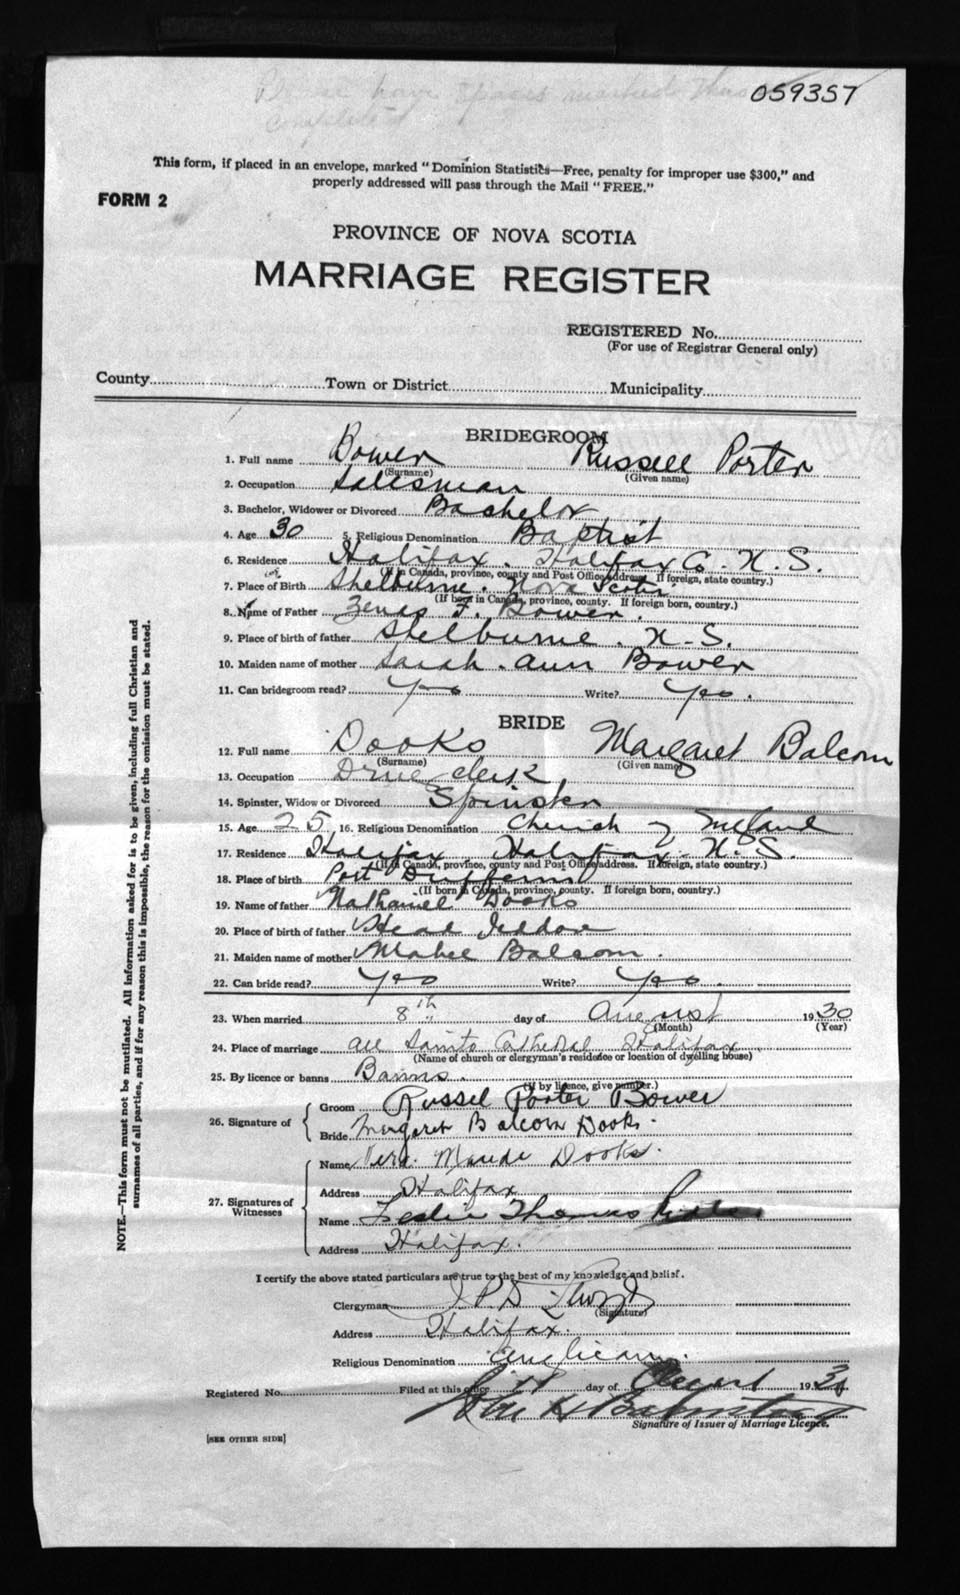 059357
Please have spaces marked thus
completed
This form, if placed in an envelope, marked "Dominion Statistics—Free, penalty for improper use $300," and
properly addressed will pass through the Mail "FREE."
FORM 2
PROVINCE OF NOVA SCOTIA
MARRIAGE REGISTER
REGISTERED No.
(For use of Registrar General only)
County Town or District Municipality
BRIDEGROOM
1. Full name Bower Russell Porter
(Surname) (Given name)
2. Occupation Salesman
3. Bachelor, Widower or Divorced Bachelor
4. Age 30 5. Religious Denomination Baptist
6. Residence Halifax. Halifax Co. N. S.
(If in Canada, province, county and Post Office address. If foreign, state country.)
7. Place of Birth Shelburne. Nova Scotia
(If born in Canada, province, county. If foreign born, country.)
8. Name of Father Zenas F. Bower.
9. Place of birth of father Shelburne. N-S.
10. Maiden name of mother Sarah. Ann Bower
11. Can bridegroom read? Yes Write? Yes.
BRIDE
12. Full name Dooks Margaret Balcom
(Surname) (Given name)
13. Occupation clerk.
14. Spinster, Widow or Divorced Spinster
15. Age 25 16. Religious Denomination Church of England
17. Residence Halifax Halifax. N. S.
(If in Canada, province, county and Post Office address. If foreign, state country.)
18. Place of birth Port Dufferin
(If born in Canada, province, county. If foreign born, country.)
19. Name of father Nathaniel Dooks
20. Place of birth of father Head Jeddore
21. Maiden name of mother Mabel Balcom.
22. Can bride read? Yes Write? Yes.
23. When married 8th day of August 1930
(Month) (Year)
24. Place of marriage All Saints Cathedral Halifax
(Name of church or clergyman's residence or location of dwelling house)
25. By licence or banns Banns.
(If by licence, give number.)
26. Signature of Groom Russel Porter Bower
Bride Margaret Balcom Dooks.
27. Signatures of Witnesses Name Vera. Maude Dooks.
Address Halifax
Name Leslie Thomas
Address Halifax.
I certify the above stated particulars are true to the best of my knowledge and belief.
Clergyman
(Signature)
Address Halifax.
Religious Denomination Anglican.
Registered No. Filed at this office day of August 1930
Signature of Issuer of Marriage Licence.
[SEE OTHER SIDE]
NOTE.—This form must not be mutilated. All information asked for is to be given, including full Christian and
surnames of all parties, and if for any reason this is impossible, the reason for the omission must be stated.